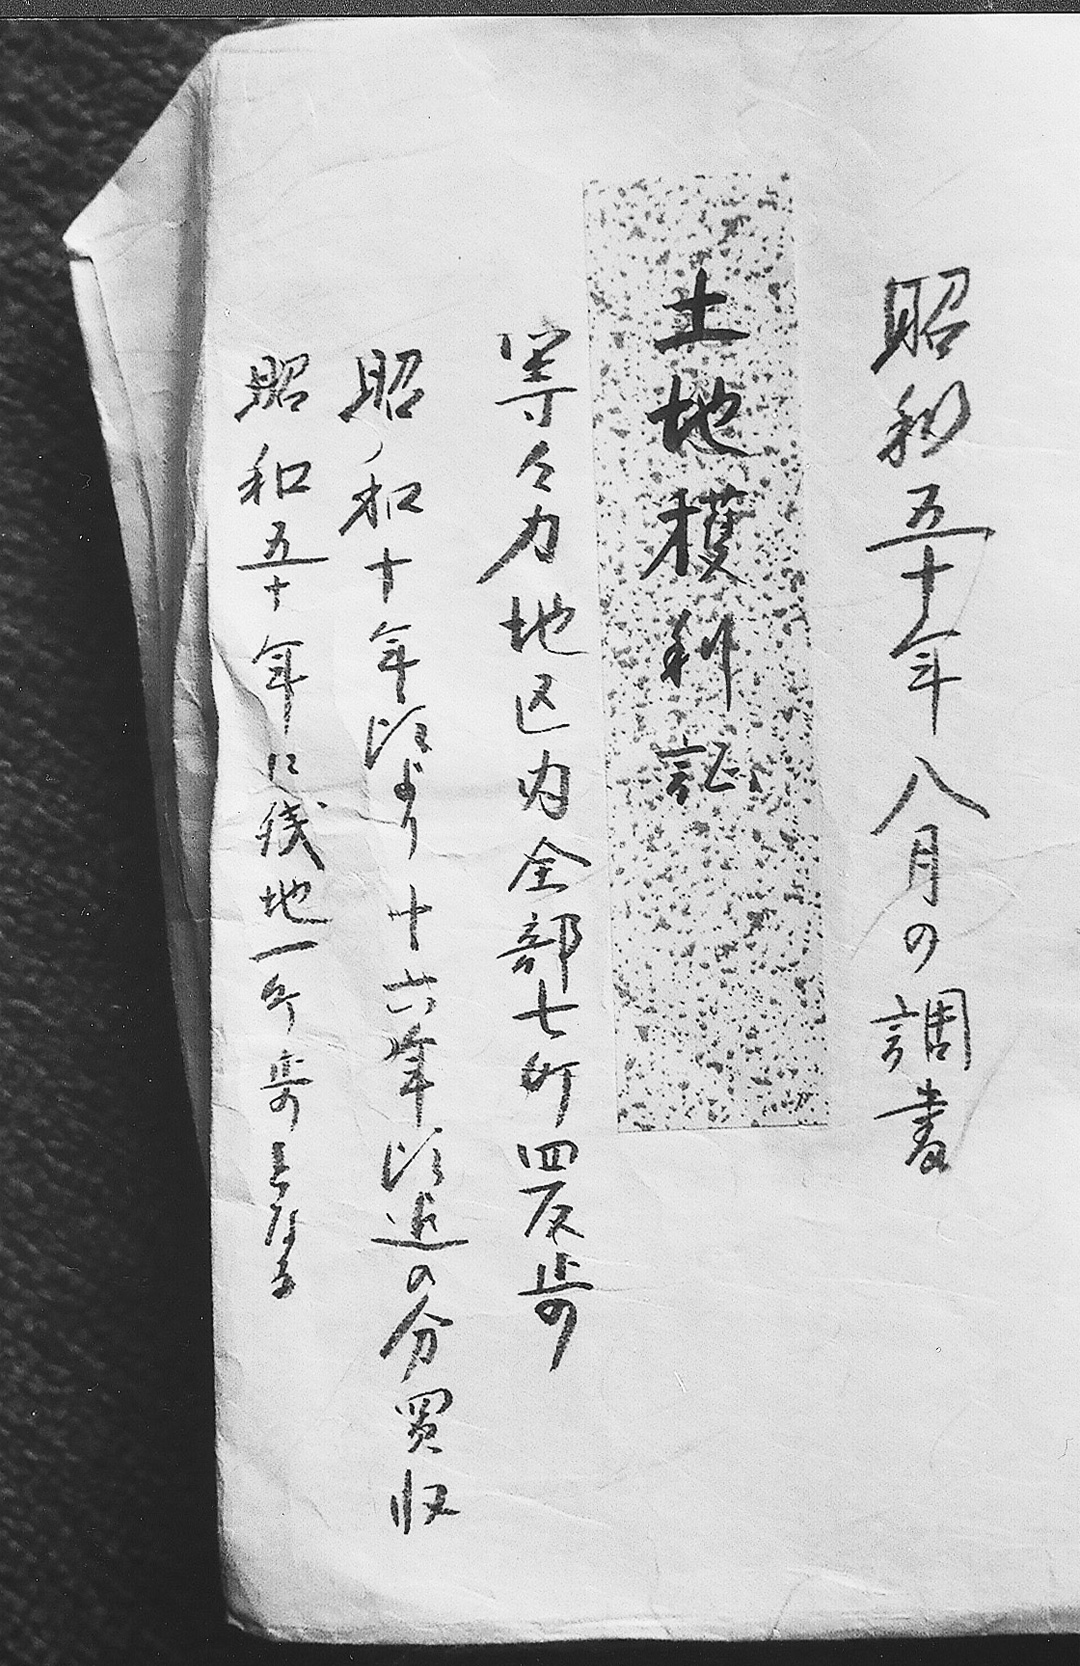 昭和五十年八月の調書
土地獲利証
等々力地区内全部七町四反歩の
昭和十年頃より十六年頃迄の分買収
昭和五十年に残地一ケ所となる